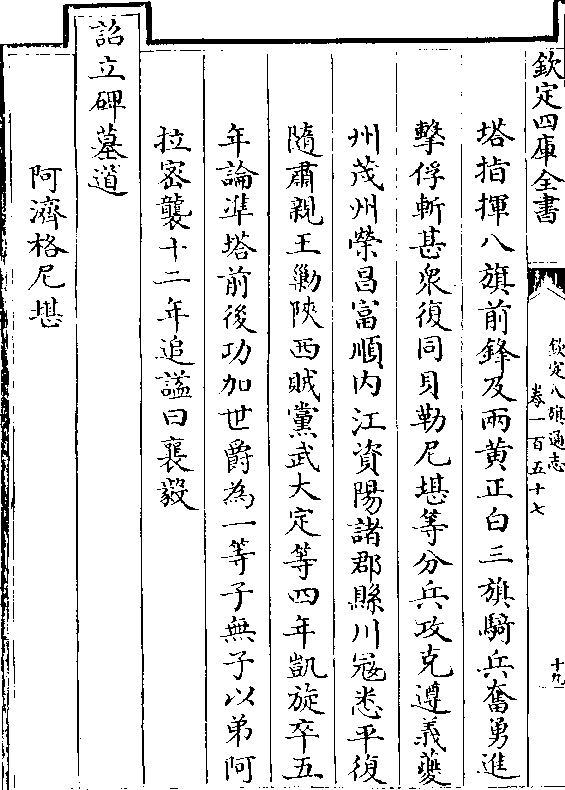 欽定四庫全書
欽定八旗通志
卷一百五十七
十九
塔指揮八旗前鋒及兩黄正白三旗騎兵奮勇進
擊俘斬甚衆復同貝勒尼堪等分兵攻克遵義夔
州茂州榮昌富順内江資陽諸郡縣川寇悉平復
隨肅親王勦陜西賊黨武大定等四年凱旋卒五
年論準塔前後功加世爵為一等子無子以弟阿
拉密襲十二年追謚曰襄毅
詔立碑墓道
阿濟格尼堪